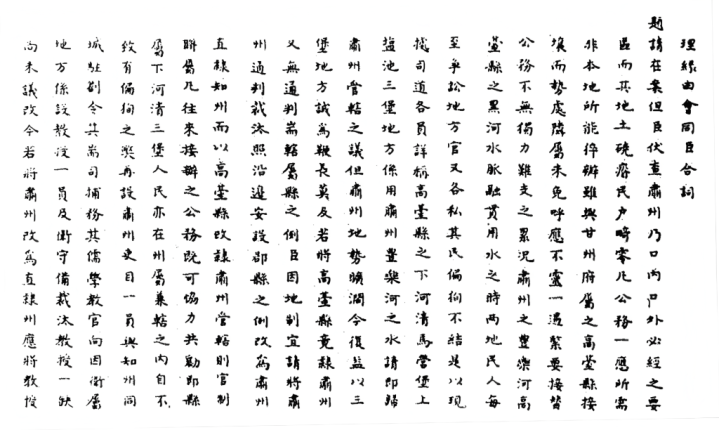 理緣由會同臣合詞
題請在案但臣伏查肅州乃口內戶外必經之要
區而其地土磽瘠民戶畸零凡公務一應所需
非本地所能倅辦雖與甘州府屬之高臺縣接
壤而勢處隣屬未免呼應不靈一遇緊要接替
公務不無獨力難支之累況肅州之豊樂河高
臺縣之黑河水脉融貫用水之時兩地民人每
至爭訟地方官又各私其民偏狥不結是以現
據司道各員詳稱高臺縣之下河清馬營堡上
鹽池三堡地方係用肅州豊樂河之水請即歸
肅州管轄之議但肅州地勢曠濶今復益以三
堡地方誠爲鞭長莫及若將高臺縣竟隸肅州
又無通判嵩轄屬縣之例臣因地制宜請將肅
州通判裁汰照沿邊安設郡縣之例改爲肅州
直隸知州而以高臺縣改隸肅州管轄則官制
聯屬凡往來接辦之公務既可協力共勷即縣
屬下河清三堡人民亦在州屬兼轄之內自不
致有偏狥之獘再設肅州吏目一員與知州同
城駐劄令其耑司捕務其儒學教官向因衛屬
地方係設教授一員及衛守備裁汰教授一缺
尚未議改今若將肅州改爲直隸州應將教授